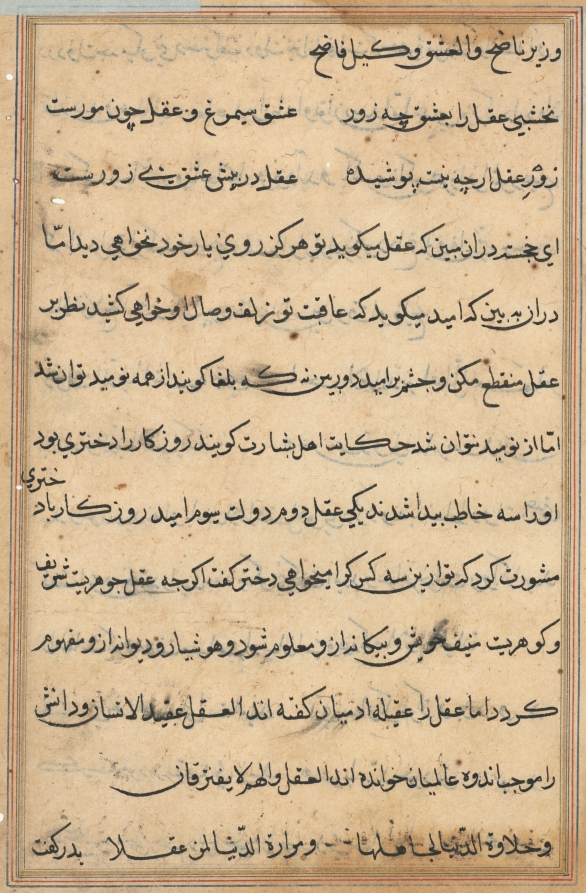 وزیر ناضح والعشق وکیل فاضح
نخشبی عقل را بعشق چه زور عشق سیمرغ و عقل چون مورست
زور عقل ارچه نیست پوشیده عقل در پیش عشق بی زورست
ای خجسته دران مبین که عقل میکوید تو هرکز روی یار خود نخواهی دید اما
دران به بین که امید میکوید که عاقبت تو زلف وصال او خواهی کشید نظر بر
عقل منقطع مکن و چشم بر امید دوربین نه که بلغا کویند از همه نومید توان شد
اما از نومید نتوان شد حکایت اهل بشارت کویند روزکار را دختری بود
او را سه خاطب پیدا شدند یکی عقل دوم دولت سیوم امید روزکار با دختری
مشورت کرد که تو ازین سه کس کرا میخواهی دختر کفت اکرچه عقل جوهریست شریف
و کوهریست منیف خویش و بیکانه ازو معلوم شود و هوشیار و دیوانه ازو مفهوم
کردد اما عقل را عقیله ادمیان کفته اند العقل عقید الانسان و دانش
را موجب اندوه عالمیان خوانده اند العقل والهم لا یفترقان
وحلاوة الدّنیا لجاهلها ومرارة الدّنیا لمن عقلا پدر کفت